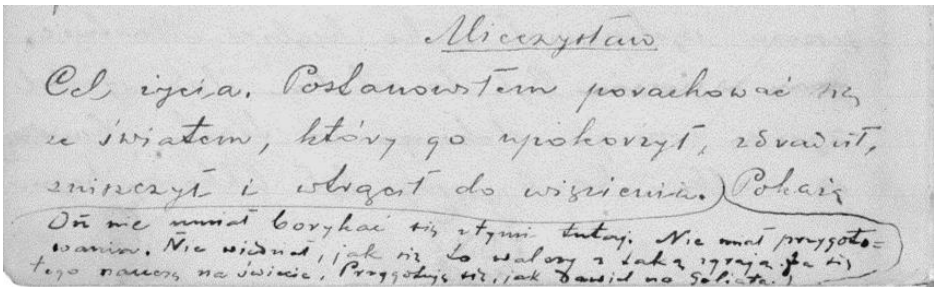 Mieczysław
Cel życia. Postanowiłem porachować się
ze światem, który go upokorzył, zdradził,
zniszczył i wtrącił do więzienia. Pokażę
On nie umiał borykać się z tymi tutaj. Nie miał przygoto=
wania. Nie wiedział, jak się to walczy z taką zgrają. Ja się
tego nauczę na świecie. Przygotuję się, jak Dawid na Goliata.